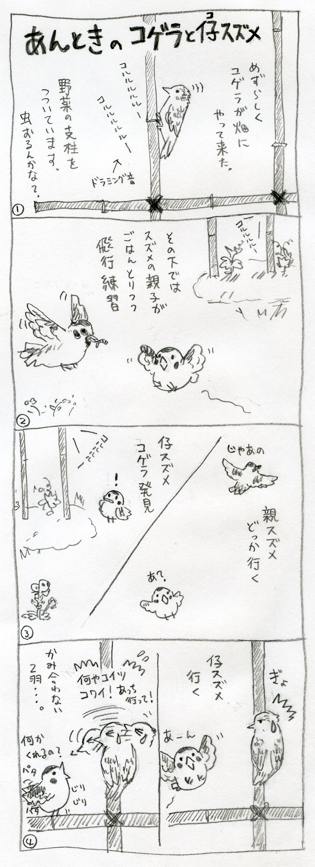 あんときの コゲラと仔スズメ
コ
めずらしく
コゲラが畑に
やって来た。
コルルルルル…
コルルルルルー
ドラミング音
野菜の支柱を
つついています。
虫おるんかな？
①
コルルルル…
その下では
スズメの親子が
ごはんとりつつ
飛行練習
②
じゃあの
親スズメ
どっか行く
あ？
！
仔スズメ
コゲラ発見
③
ぎょ
仔スズメ
行く
あーん
何やコイツ
コワイ！あっち
行って！
かみ合わない
2羽・・・。
何か
くれるの？
パタ
パタ
じり
じり
④